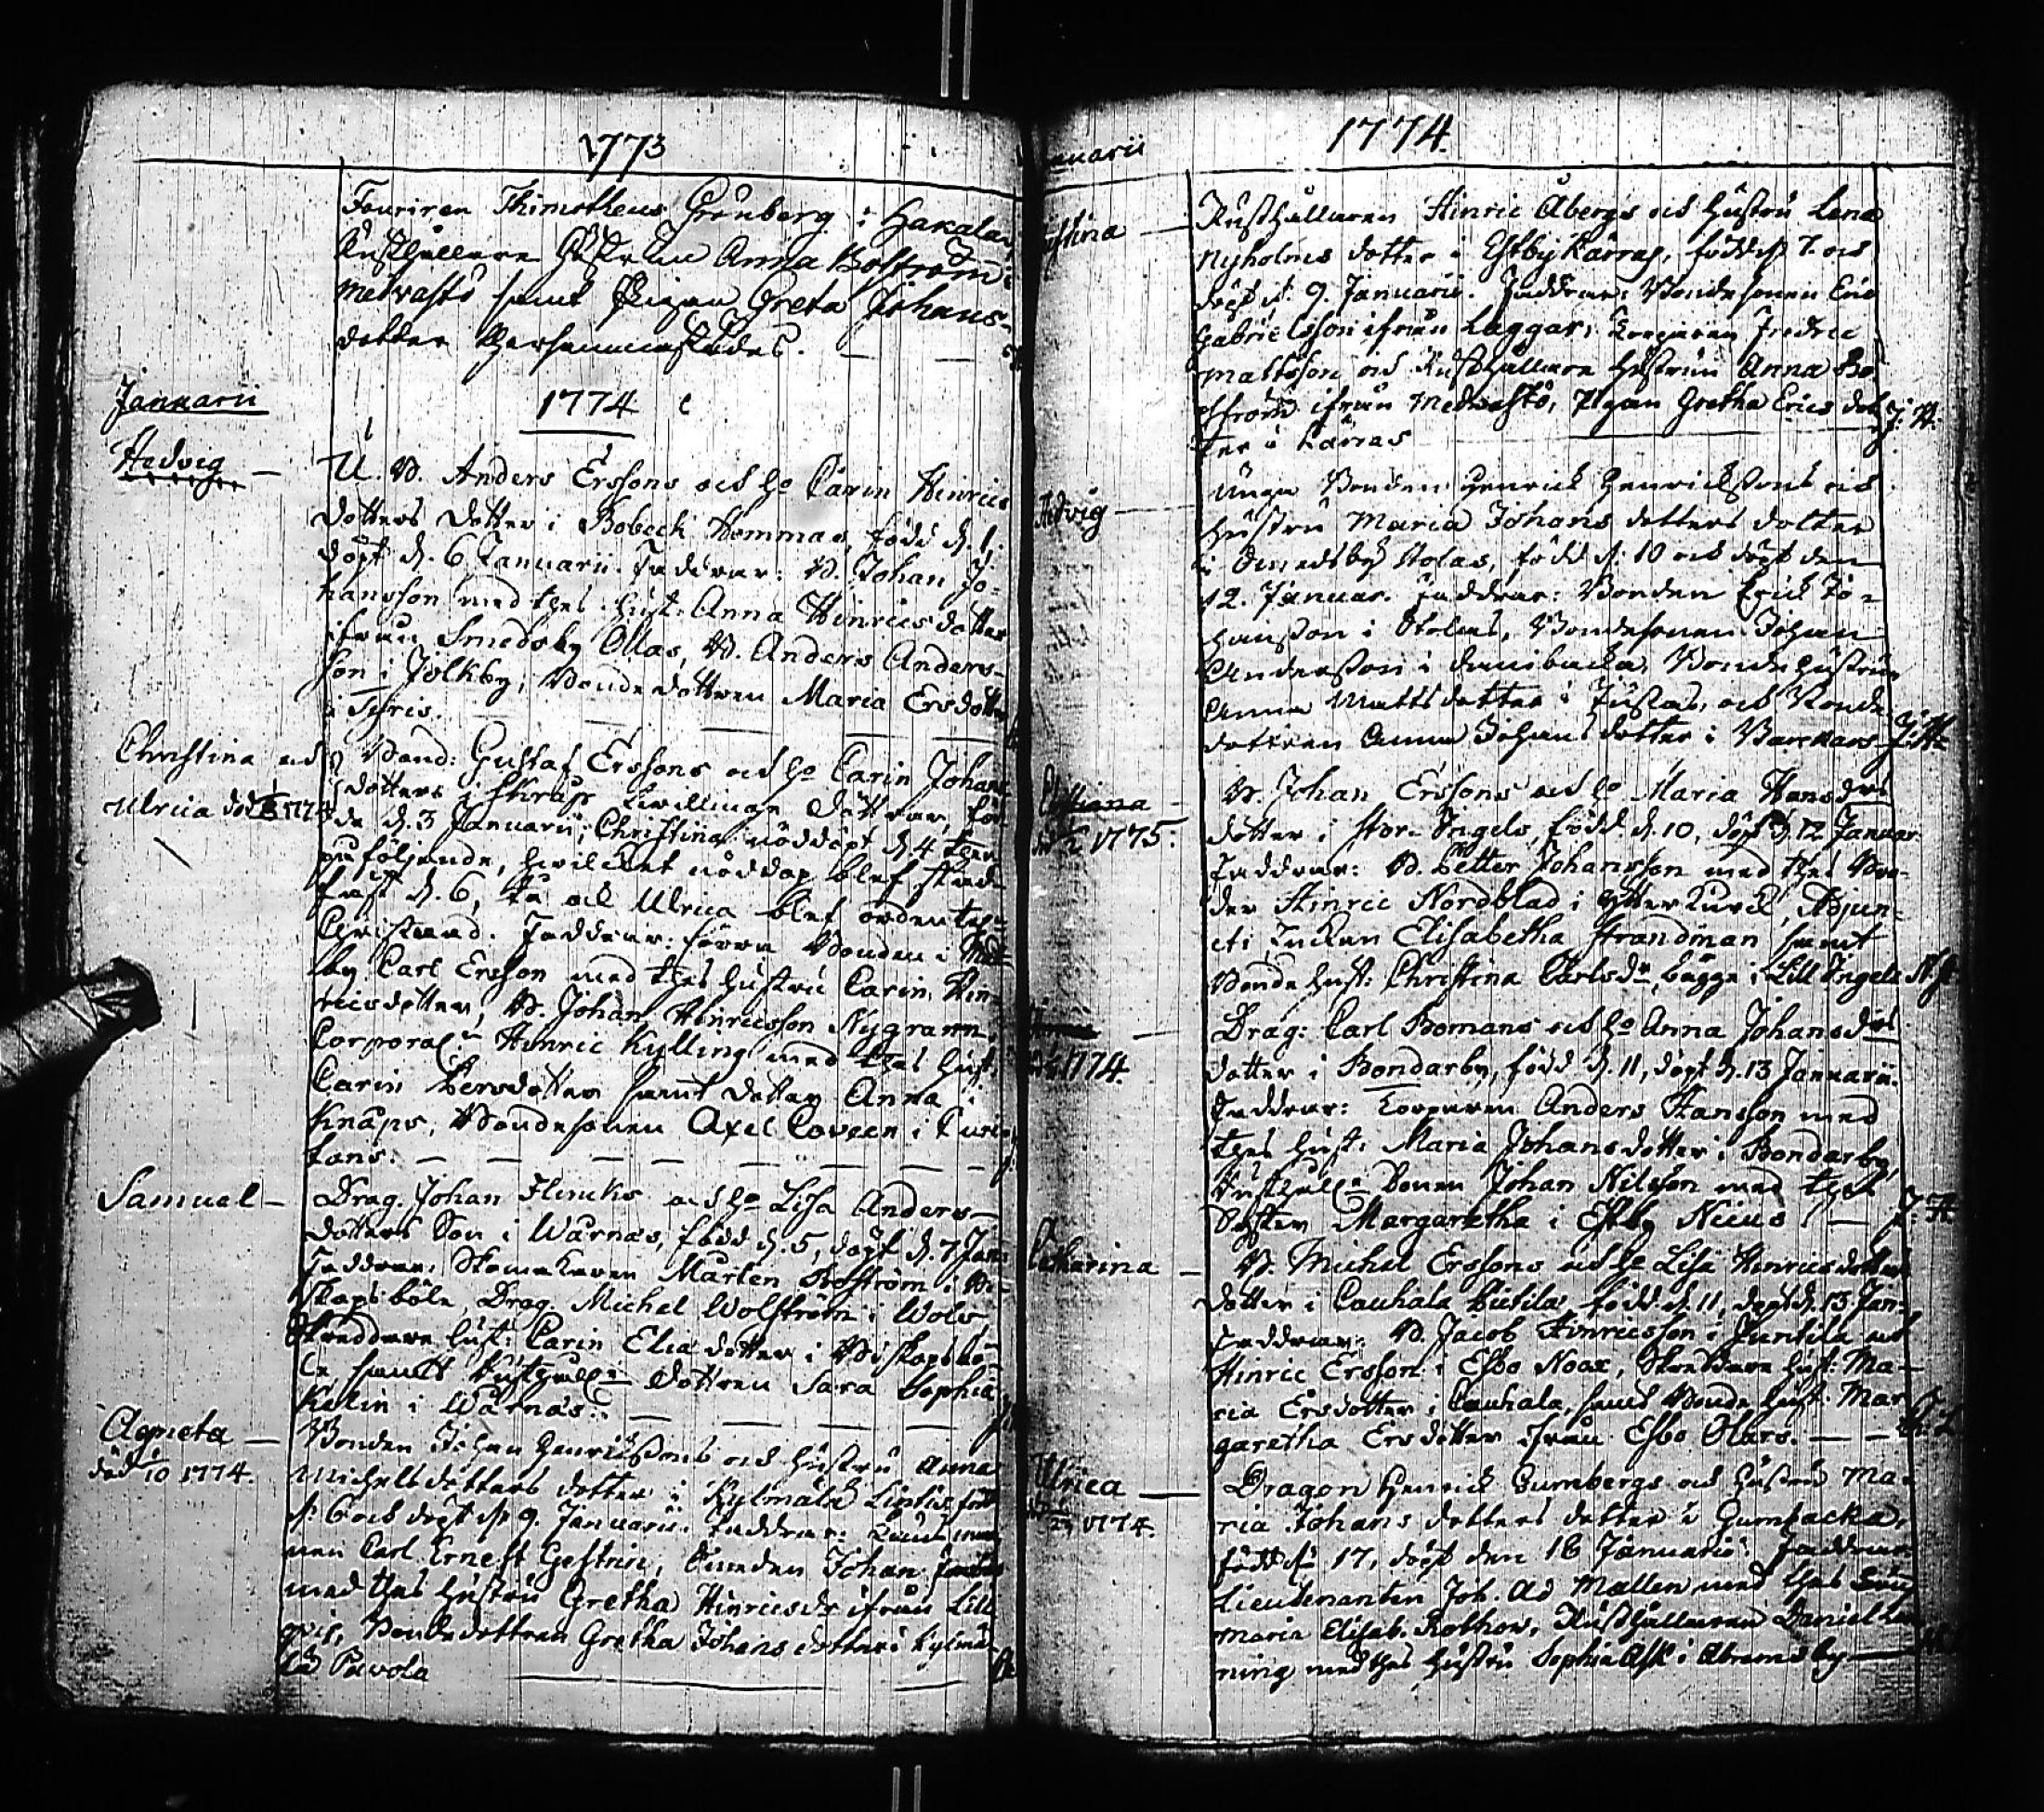 1773
Foureren Thimotheus Grönberg i Hakala,
Rusthållare Hustrun Anna Boström i
Medvastö samt Pigan Greta Johans-
dotter thersammastädes.
Januarii
1774
Hedvig
U. B. Anders Erssons och ho Carin Hinrics
dotters dotter i Bobeck Hommas, född d. 1.
döpt d. 6 Januarii. Faddrar: B. Johan Jo-
hansson med thes hust: Anna Hinricsdotter
ifrån Smedsby Ollas, B. Anders Anders-
son i Jolkby, Bondedottren Maria Ersdotter
i Thris.
Christina och
Ulrica död 1774
Bond: Gustaf Erssons och ho Carin Johans
dotters i Skräps tvillinge döttrar, föd-
da d. 3 Januarii, Christina nöddöpt d. 4 ther
på följande, hvilcket nöddop blef stad-
fäst d. 6, då och Ulrica blef ordentel.
Christnad. Faddrar: förra Bonden i
by Carl Ersson med thes hustru Carin Hin-
ricsdotter, B. Johan Hinricsson Nygrann,
Corporal: Hinric Kylling med thes hust:
Carin Persdotter samt dotter Anna i
Knaps, Bondesonen Axel Coveen i Curi-
tans.
Samuel
Drag. Johan Flincks och ho Lisa Anders-
dotters Son i Warnäs, född d. 5, döpt d. 7 Jan:
Faddrar: Skomakaren Mårten Boström i Bi-
skopsböle, Drag. Michel Wolström i Wols,
Skreddare hust: Carin Elia dotter i Biskopsbö-
le samt Rusthåll: dottren Sara Sophia
Kelin i Warnäs.
Agneta
död 10 1774.
Bonden Johan Henrikssons och hustru Anna
Michelsdotters dotter i Kylmälä Liptis född
d. 6 och döpt d. 9. Januarii. Faddrar:
nen Carl Ernest Gestrin, Bonden Johan
med thes hustru Gretha Hinricsdr ifrån Lill
Bondedottren Gretha Johansdotter i Kylmä-
lä Pavola
1774.
Januarii
Christina
Rusthållaren Hinric Åbergs och hustru Lena
Nyholms dotter i Estby Kärras, född d. 7. och
döpt d. 9. Januarii. Faddrar: Bondesonen Eric
Gabrielsson ifrån Laggar, Fredric
Mattsson och Rusthållare hustrun Anna Bo-
ström ifrån Medvastö, Pigan Gretha Erics dot
ter i Kärras
J: H.
Hedvig
Unga Bonden Henrick Henrickssons och
hustru Maria Johans dotters dotter
i Smedsby Stolas, född d: 10 och döpt den
12. Januar. Faddrar: Bonden Erick Jo-
hansson i Stolas, Bondesonen Johan
Andersson i Bondehustrun
Anna Matts dotter i Justas, och Bonde-
dottren Anna Johansdotter i Backars
J: H.
1775.
B. Johan Erssons och ho Maria Hansdrs
dotter i Stor-Ingels, född d. 10, döpt d. 12 Januar.
Faddrar: B. Petter Johansson med thes Bro-
der Hinric Nordblad i Ytter Kurck, Adjun-
cti Enckan Elisabetha Strandman samt
Bonde hust: Christina Carlsdr, bägge i Lill Ingels
1774.
Drag: Carl Bomans och ho Anna Johansdrs
dotter i Bondarby, född d. 11, döpt d. 13 Januarii.
Faddrar: Anders Hansson med
thes hust: Maria Johansdotter i Bondarby,
Rusthåll: Sonen Johan Nilsson med thes
Syster Margaretha i Estby Nicus.
J: H.
Catharina
B. Michel Erssons och ho Lisa Hinricsdotters
dotter i Cauhala Pietilä, född d. 11, döpt d. 13 Jan:
Faddrar: B. Jacob Hinricsson i Puntila och
Hinric Ersson i Esbo Noax, Skreddare hust: Ma-
ria Ersdotter i Cauhala, samt Bonde hust: Mar-
garetha Ersdotter ifrån Esbo Olars.
Ulrica
1774.
Dragon Henrick Gumbergs och hustru Ma-
ria Johans dotters dotter i Gumbacka,
född d: 17, döpt den 18 Januarii. Faddrar
Lieutenanten Joh. Ad. Mallen med thes
Maria Elisab. Rothow, Rusthållaren Daniel
ning med thes hustru Sophia Ask i Abramsby